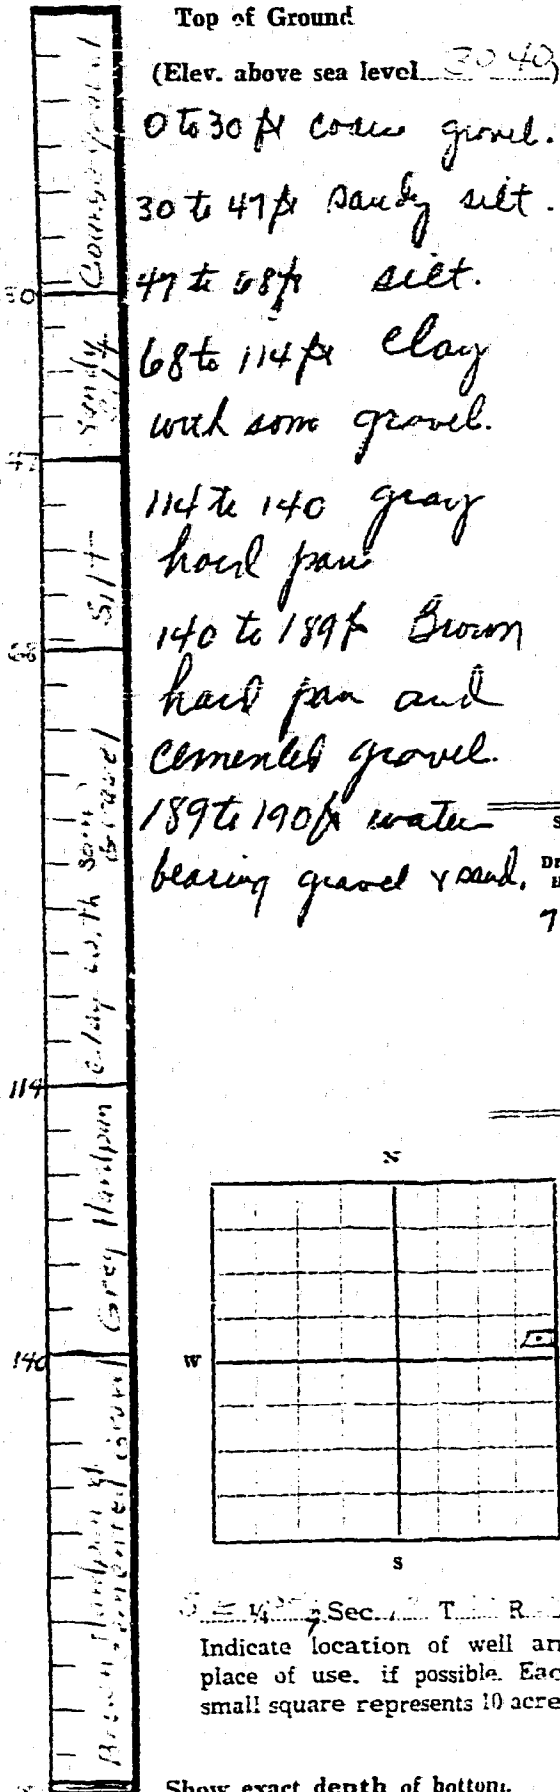 Top of Ground
(Elev. above sea level 3040)
0 to 30 ft coarse gravel.
30 to 47 ft sandy silt.
47 to 68 ft silt.
68 to 114 ft clay
with som gravel.
114 to 140 gray
hard pan
140 to 189 ft Brown
hard pan and
cemented gravel.
189 to 190 ft water
bearing gravel & sand.
Coarse gravel
30
Sandy Silt
47
Silt
68
Clay with som Gravel
114
Grey Hardpan
140
Brown Hardpan &
cemented Gravel
S
Dr
H
7
N
W
S
¼ Sec. T. R.
Indicate location of well an
place of use, if possible. Eac
small square represents 10 acre
Show exact depth of bottom.